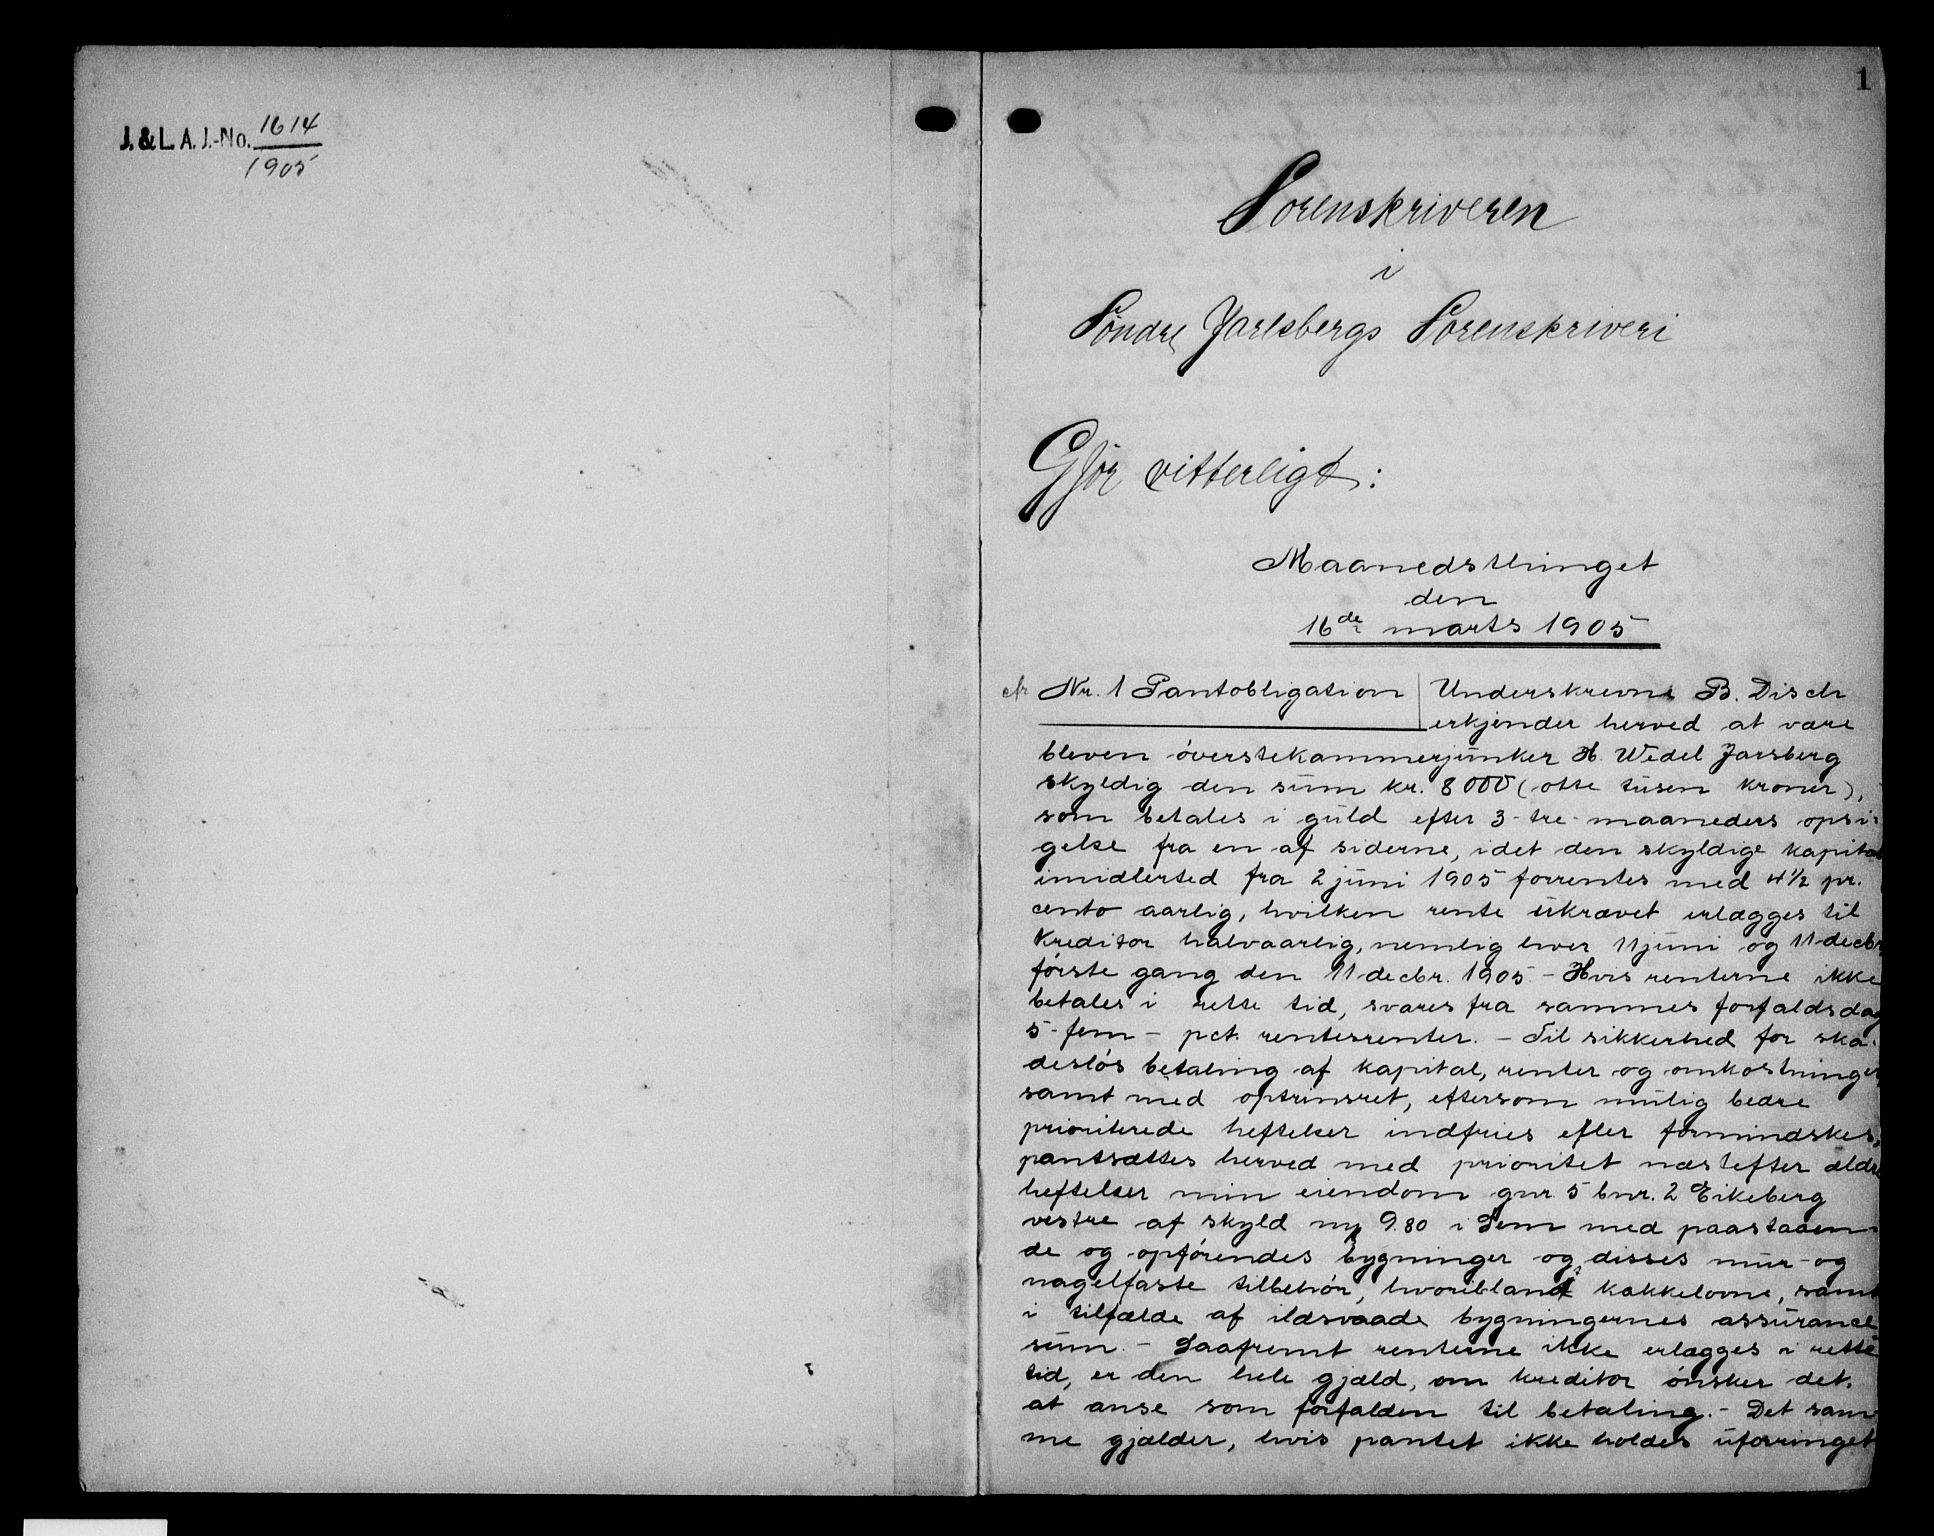 J. & L. A. J.-No. 1614
1905
1
Sorenskriveren
i
Søndre Jarlsbergs Sorenskriveri
Gjør vitterligt:
Maanedsthinget
den
16de marts 1905
cfr Nr. 1 Pantobligation Underskrevne B. Disch
erkjender herved at være
bleven överstekammerjunker H. Wedel Jarsberg
skyldig den sum kr. 8000 (otte tusen kroner),
som betales i guld efter 3-tre-maaneders opsi-
gelse fra en af siderne, idet den skyldige kapital
imidlertid fra 2 juni 1905 forrentes med 4½ pr.
cento aarlig, hvilken rente ukrævet erlægges til
Kreditor halvaarlig, nemlig hver 11 juni og 11 decbr
förste gang den 11 decbr. 1905 - Hvis renterne ikke
betales i rette tid, svares fra sammes forfaldsdag
5-fem - pct. rentesrenter. - Til sikkerhed for ska-
deslös betaling af kapital, renter og omkostninger,
samt med optrinsret, eftersom mulig bedre
prioriterede heftelser indfries efler formindskes,
pantsættes herved med prioritet næstefter ældre
heftelser min eiendom gnr. 5 bnr. 2 Eikeberg
vestre af skyld my 9.80 i Sem med paastaaen-
de og opförendes bygninger og disses mur- og
nagelfaste tilbehör, hvoriblandt kakkelovne, samt
i tilfælde af ildsvaade bygningernes assurance
sum. - Saafremt renterne ikke erlægges i rette
tid, er den hele gjæld, om kreditor önsker det,
at anse som forfalden til betaling. - Det sam-
me gjælder, hvis pantet ikke holdes uforringet